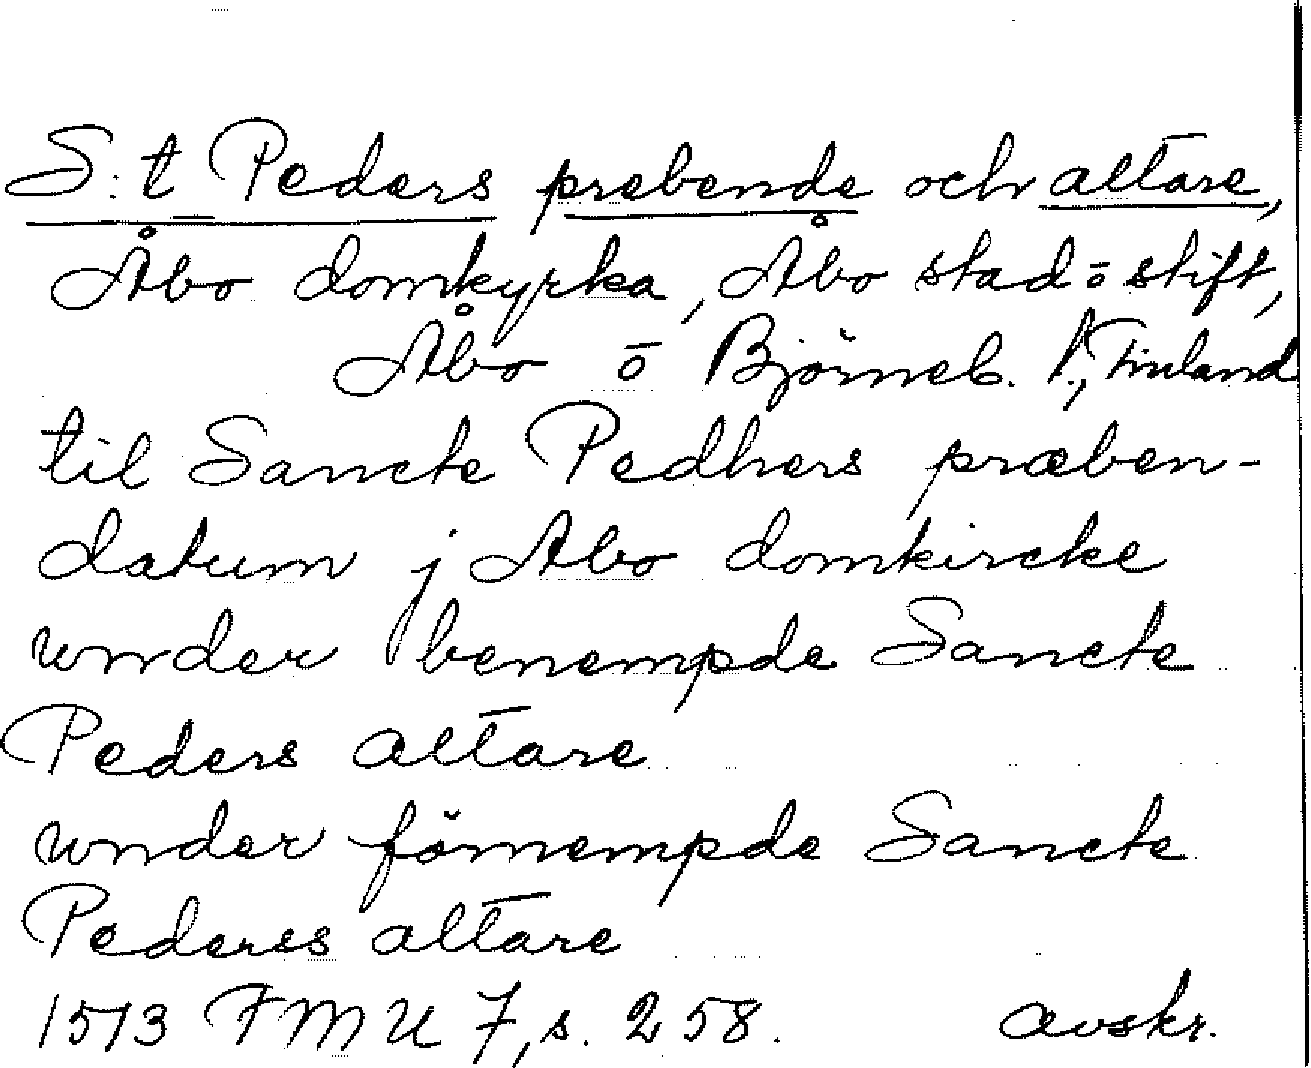 S:t Peders prebende och altare,
Åbo domkyrka, Åbo stad o stift,
Åbo o Björneb. l., Finland
til Sancte Pedhers præben-
datum j Abo domkircke
wnder benempde Sancte
Peders altare
wnder förnempde Sancte
Paderes altare
1513 FMU 7, s. 258. avskr.